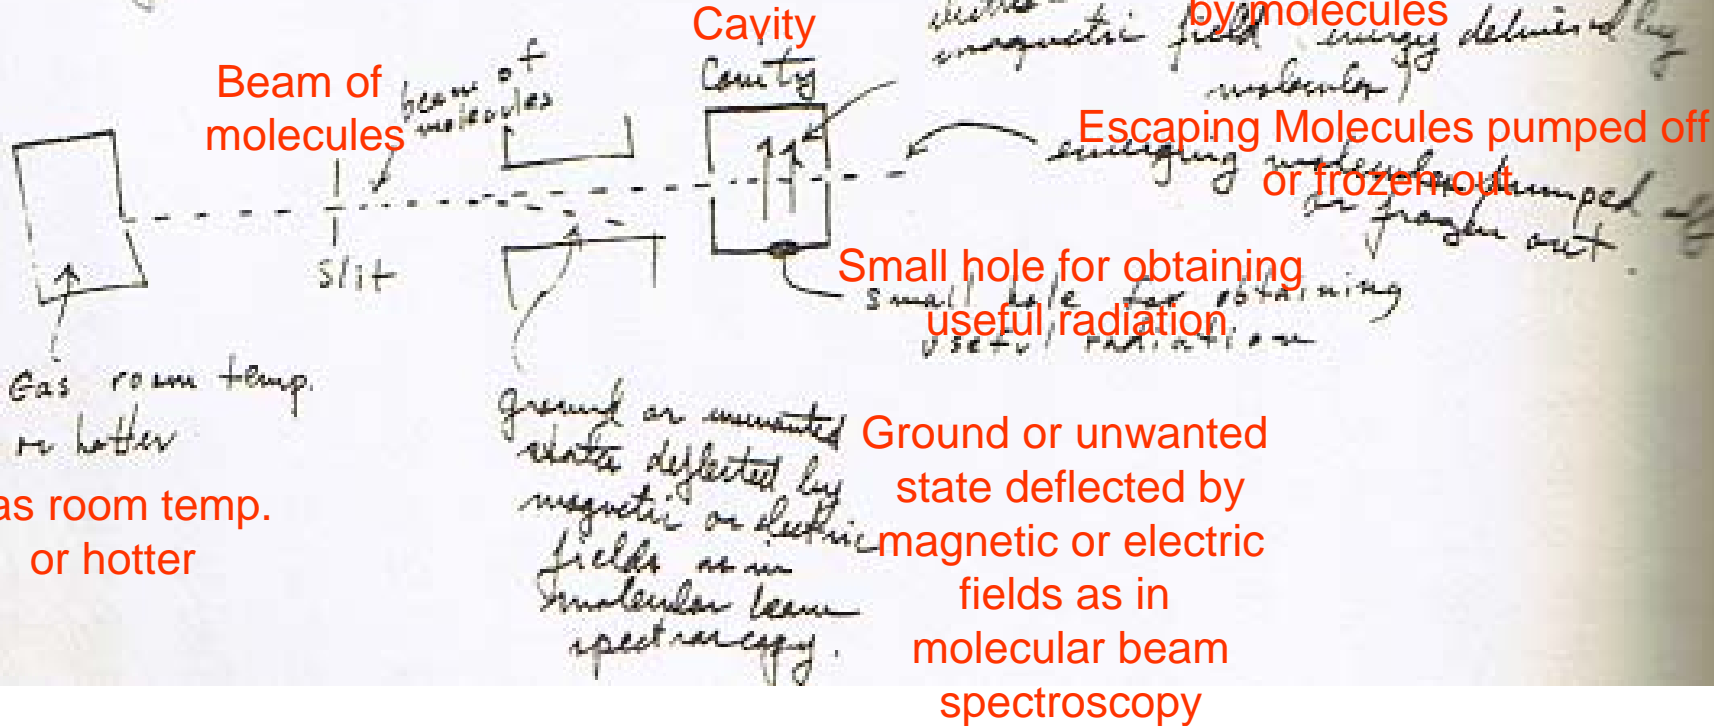 Cavity
by molecules
magnetic field energy delivered by
molecules)
Cavity
Beam of
molecules
beam of
molecules
Escaping Molecules pumped off
or frozen out
emerging molecules pumped off
or frozen out.
slit
Small hole for obtaining
useful radiation
small hole for obtaining
useful radiation
Gas room temp.
or hotter
as room temp.
or hotter
ground or unwanted
state deflected by
magnetic or electric
fields as in
molecular beam
spectroscopy.
Ground or unwanted
state deflected by
magnetic or electric
fields as in
molecular beam
spectroscopy